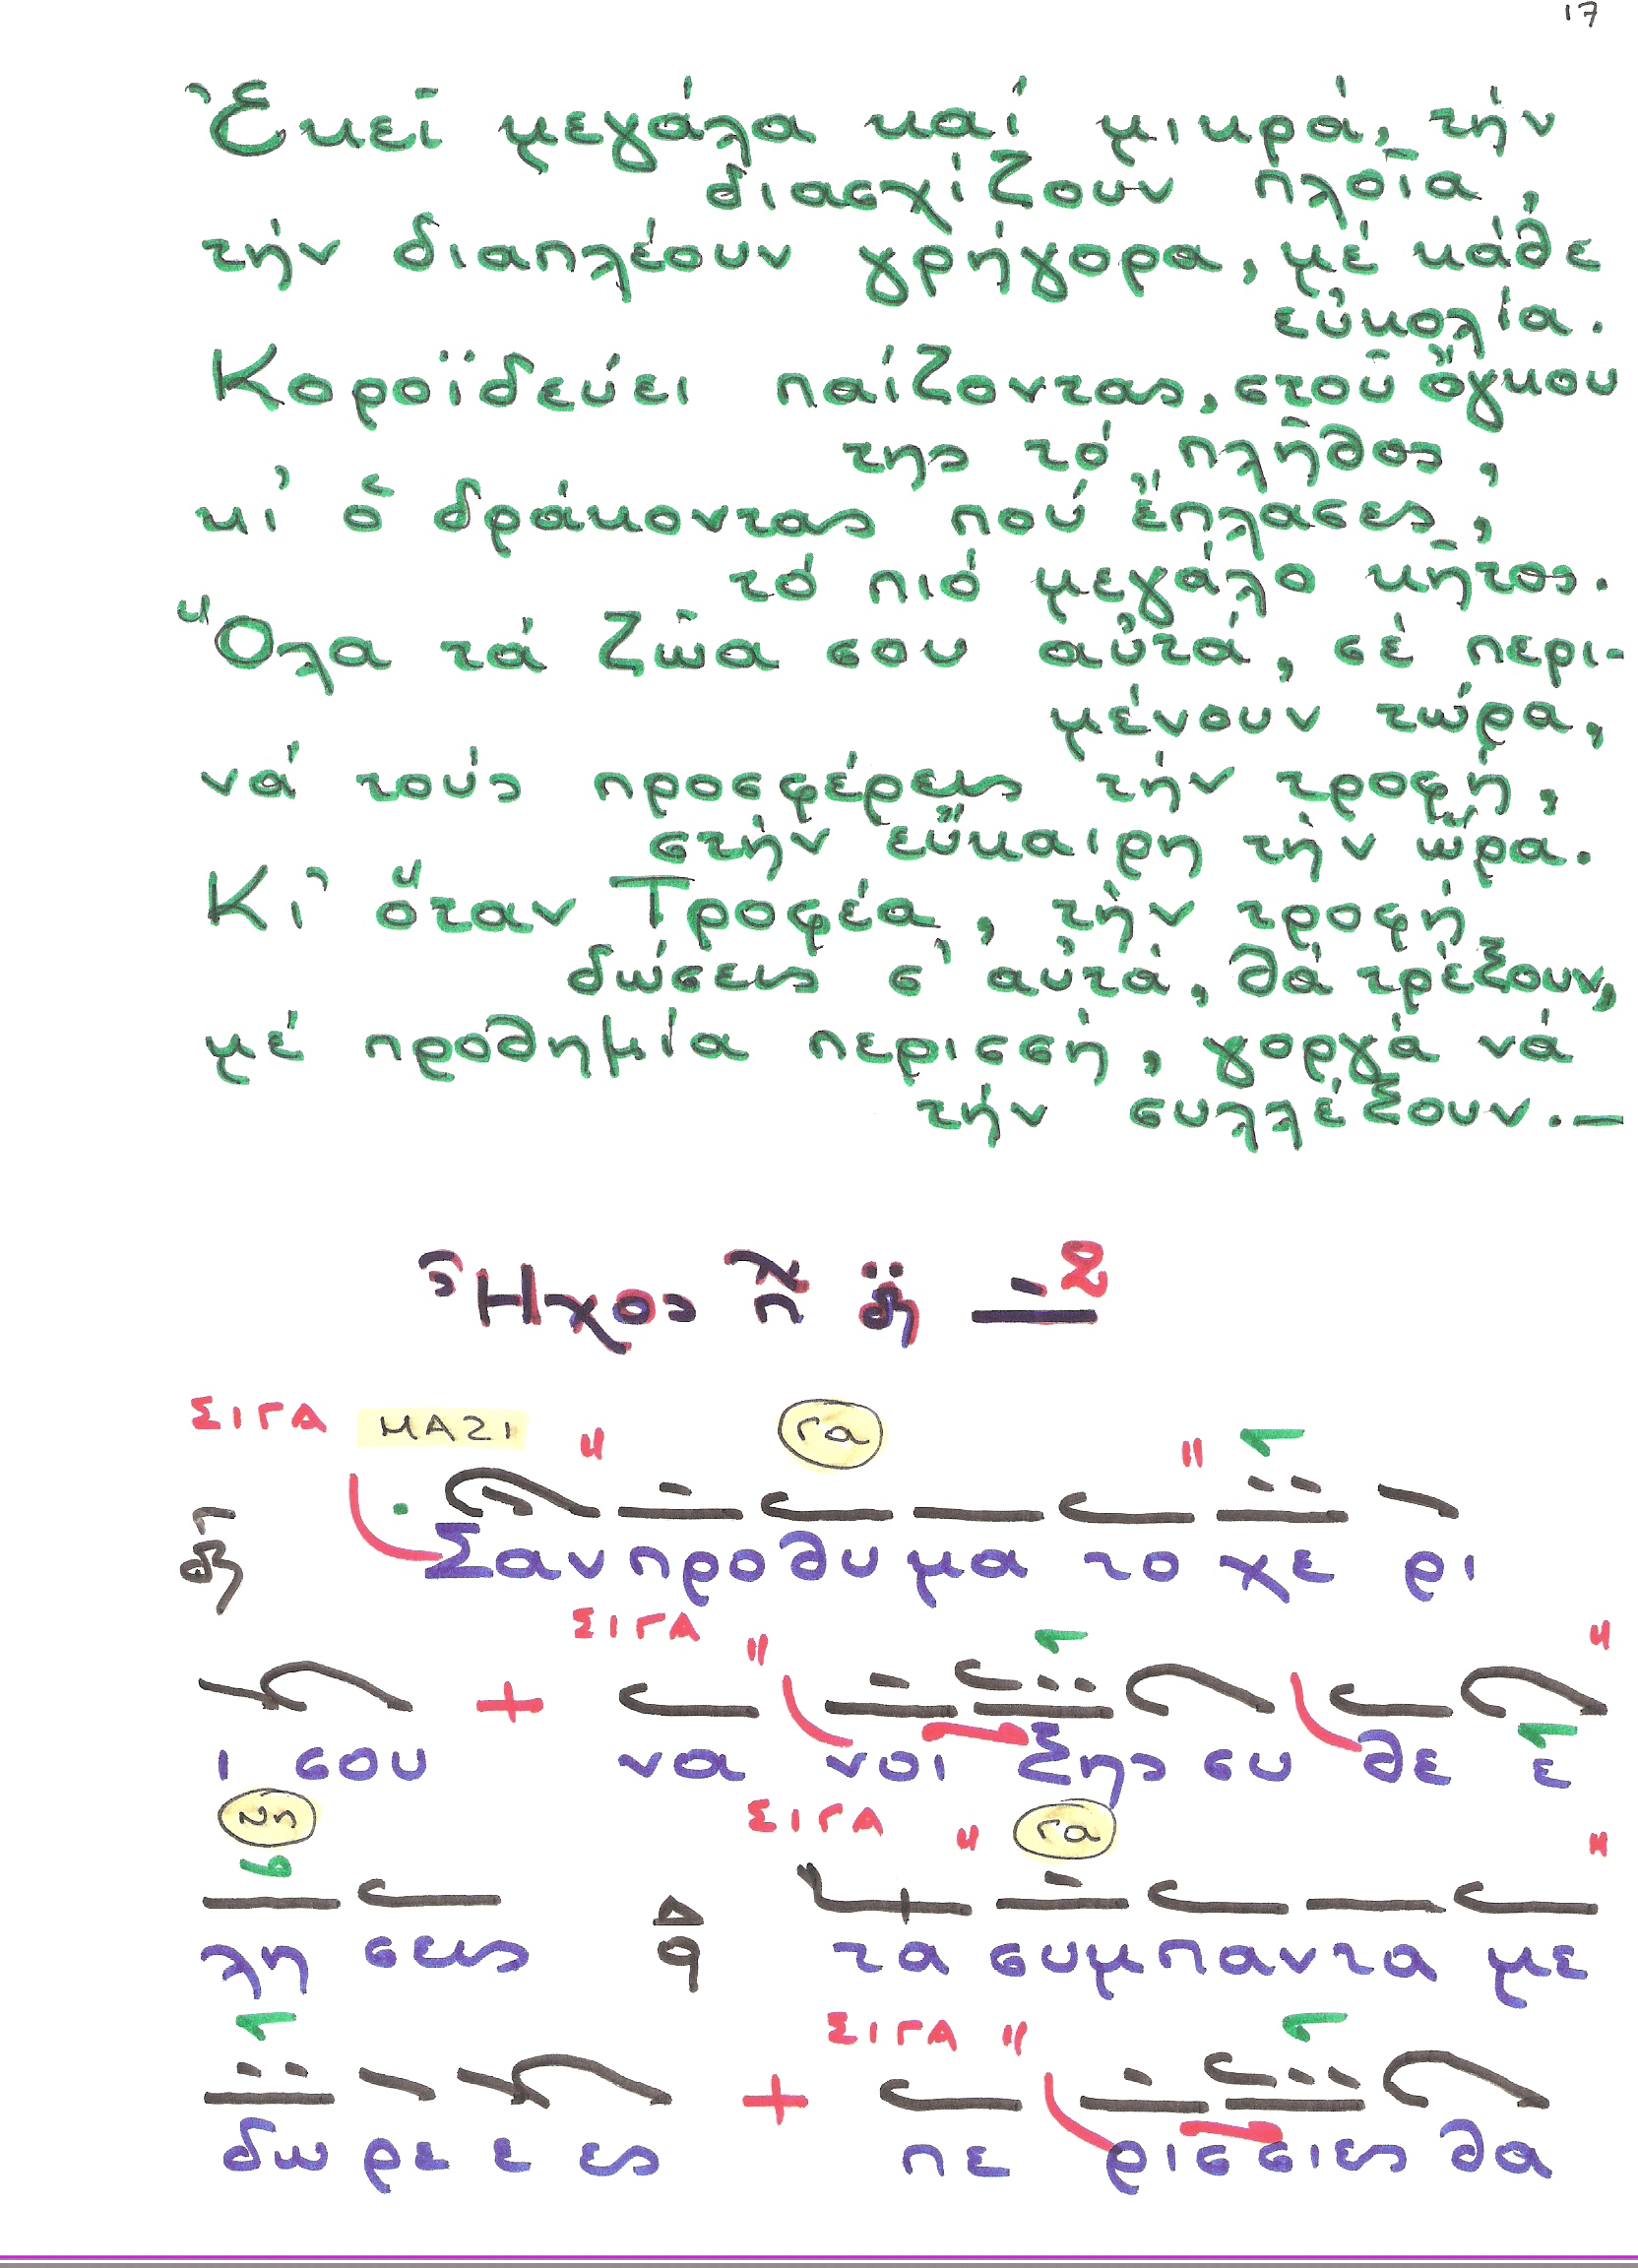 17
Ἐκεῖ μεγάλα καί μικρά, τήν
διασχίζουν πλοῖα,
τήν διαπλέουν γρήγορα, μέ κάθε
εὐκολία.
Κοροϊδεύει παίζοντας, στοῦ ὄγκου
της τό πλῆθος,
κι᾿ ὁ δράκοντας πού ἔπλασες,
τό πιό μεγάλο κῆτος.
Ὅλα τά ζῶα σου αὐτά, σέ περι-
μένουν τώρα,
νά τούς προσφέρεις τήν τροφή,
στήν εὔκαιρη τήν ὥρα.
Κι᾿ ὅταν Τροφέα, τήν τροφή
δώσεις σ᾿ αὐτά, θά τρέξουν,
μέ προθημία περισσή, γοργά νά
τήν συλλέξουν.—
Ἦχος π δι
ΣΙΓΑ ΜΑΖΙ Γα
Σαν προθυμα το χε ρι
ΣΙΓΑ
ι σου να νοι ξης συ θε ε
Νη ΣΙΓΑ Γα
λη σεις τα συμπαντα με
ΣΙΓΑ
δω ρε ε ες πε ρισσιες θα